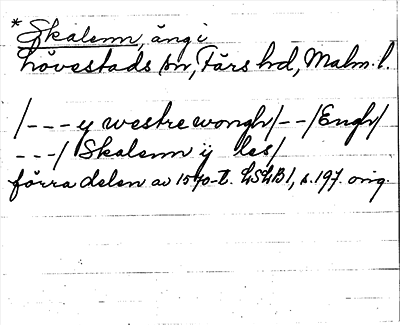 * Skalenn, äng i
Hövestads sn, Färs hd, Malm. l.
/--- y westre wongh/--/Engh/
---/ Skalenn ÿ les/
förra delen av 1570-t. LSLB 1, s. 197. orig.